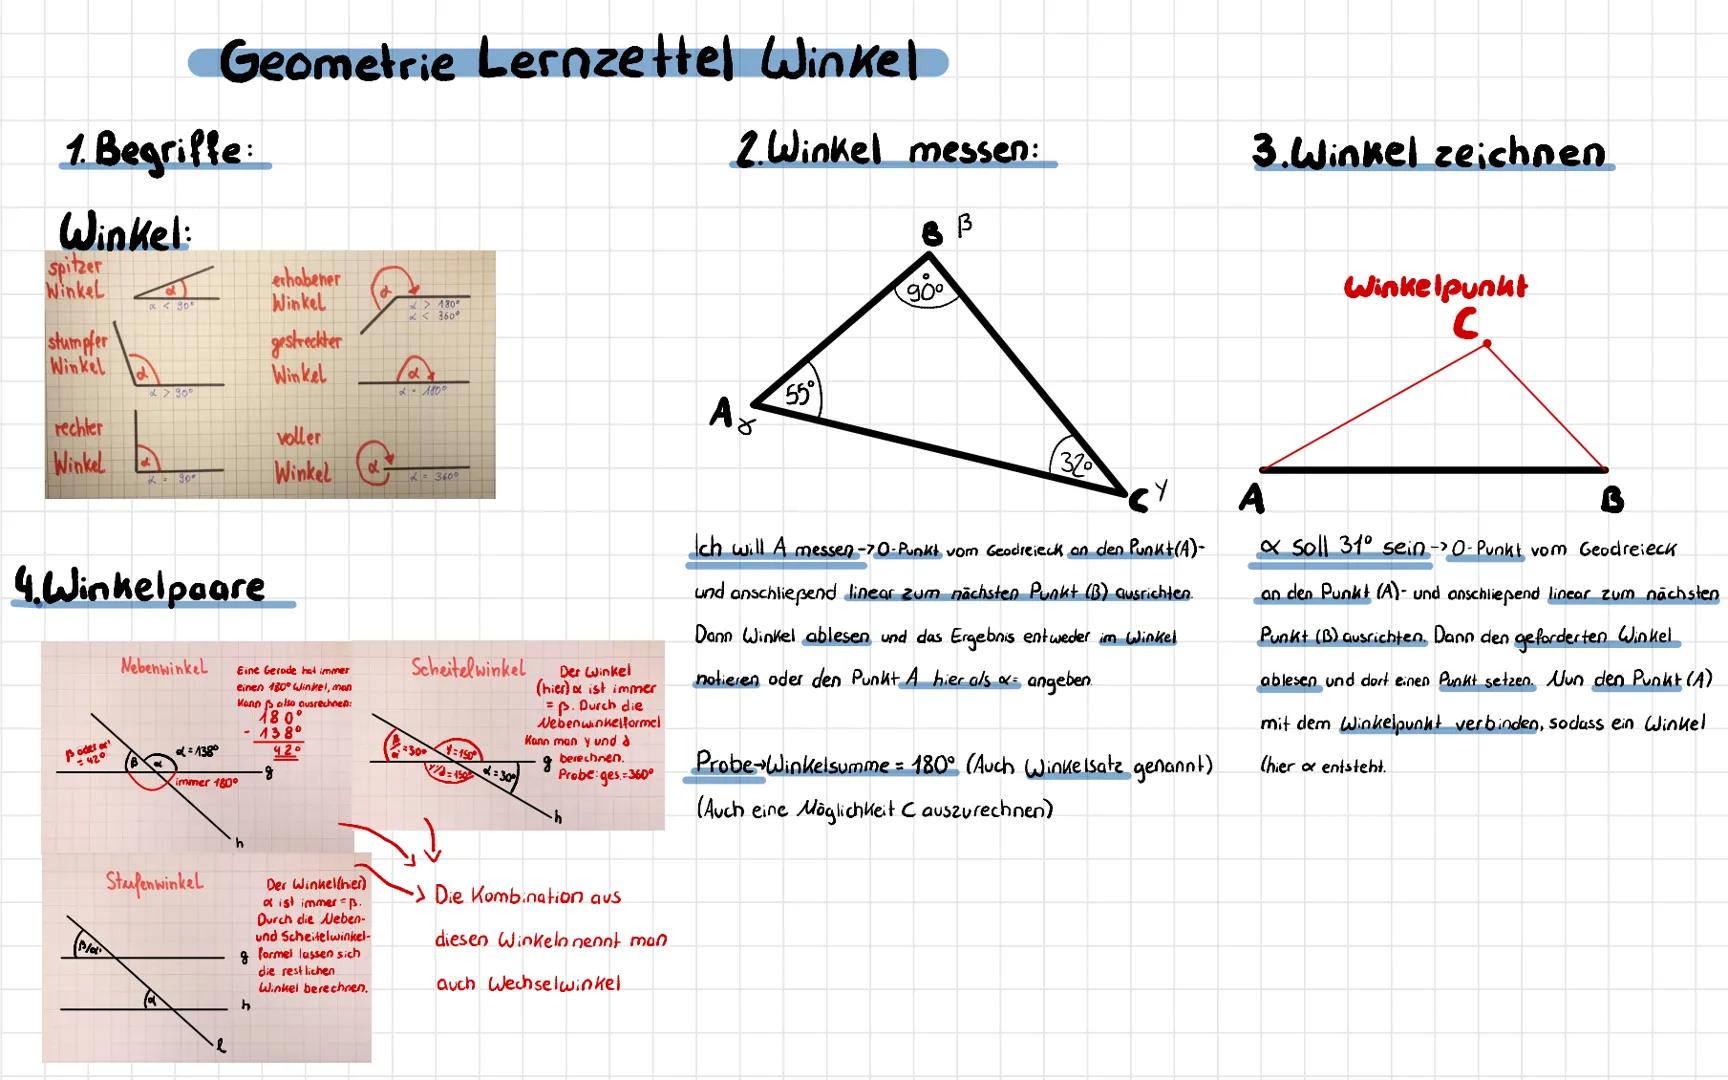 Geometrie Lernzettel Winkel
1. Begriffe:
Winkel:
spitzer
Winkel
α
α < 90°
erhabener
Winkel
α
α > 180°
α < 360°
stumpfer
Winkel
α
α > 90°
gestreckter
Winkel
α
α = 180°
rechter
Winkel
α
α = 90°
voller
Winkel
α
α = 360°
2. Winkel messen:
B β
90°
55°
A
32°
C γ
Ich will A messen -> 0-Punkt vom Geodreieck an den Punkt (A)-
und anschließend linear zum nächsten Punkt (B) ausrichten.
Dann Winkel ablesen und das Ergebnis entweder im Winkel
notieren oder den Punkt A hier als α= angeben.
Probe→Winkelsumme = 180° (Auch Winkelsatz genannt)
(Auch eine Möglichkeit C auszurechnen)
3. Winkel zeichnen
Winkelpunkt
C
A
B
α soll 31° sein -> 0-Punkt vom Geodreieck
an den Punkt (A)- und anschließend linear zum nächsten
Punkt (B) ausrichten. Dann den geforderten Winkel
ablesen und dort einen Punkt setzen. Nun den Punkt (A)
mit dem Winkelpunkt verbinden, sodass ein Winkel
(hier α entsteht.
4. Winkelpaare
Nebenwinkel
Eine Gerade hat immer
einen 180° Winkel, man
kann β also ausrechnen:
180°
- 138°
42°
β oder α'
= 42°
β
α
α = 138°
g
immer 180°
h
Scheitelwinkel
Der Winkel
(hier) α ist immer
= β. Durch die
Nebenwinkelformel
kann man γ und δ
berechnen.
Probe: ges. = 360°
β/α' = 30°
γ = 150°
γ'/δ = 150°
α = 30°
g
h
Stufenwinkel
Der Winkel (hier)
α ist immer = β.
Durch die Neben-
und Scheitelwinkel-
formel lassen sich
die restlichen
Winkel berechnen.
β/α'
g
α
h
l
Die Kombination aus
diesen Winkeln nennt man
auch Wechselwinkel